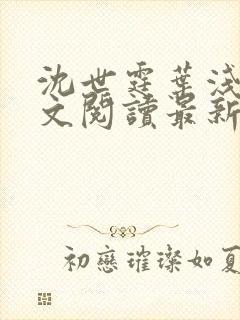 沈世霆葉淺
文閱讀最新
初戀璀璨如夏